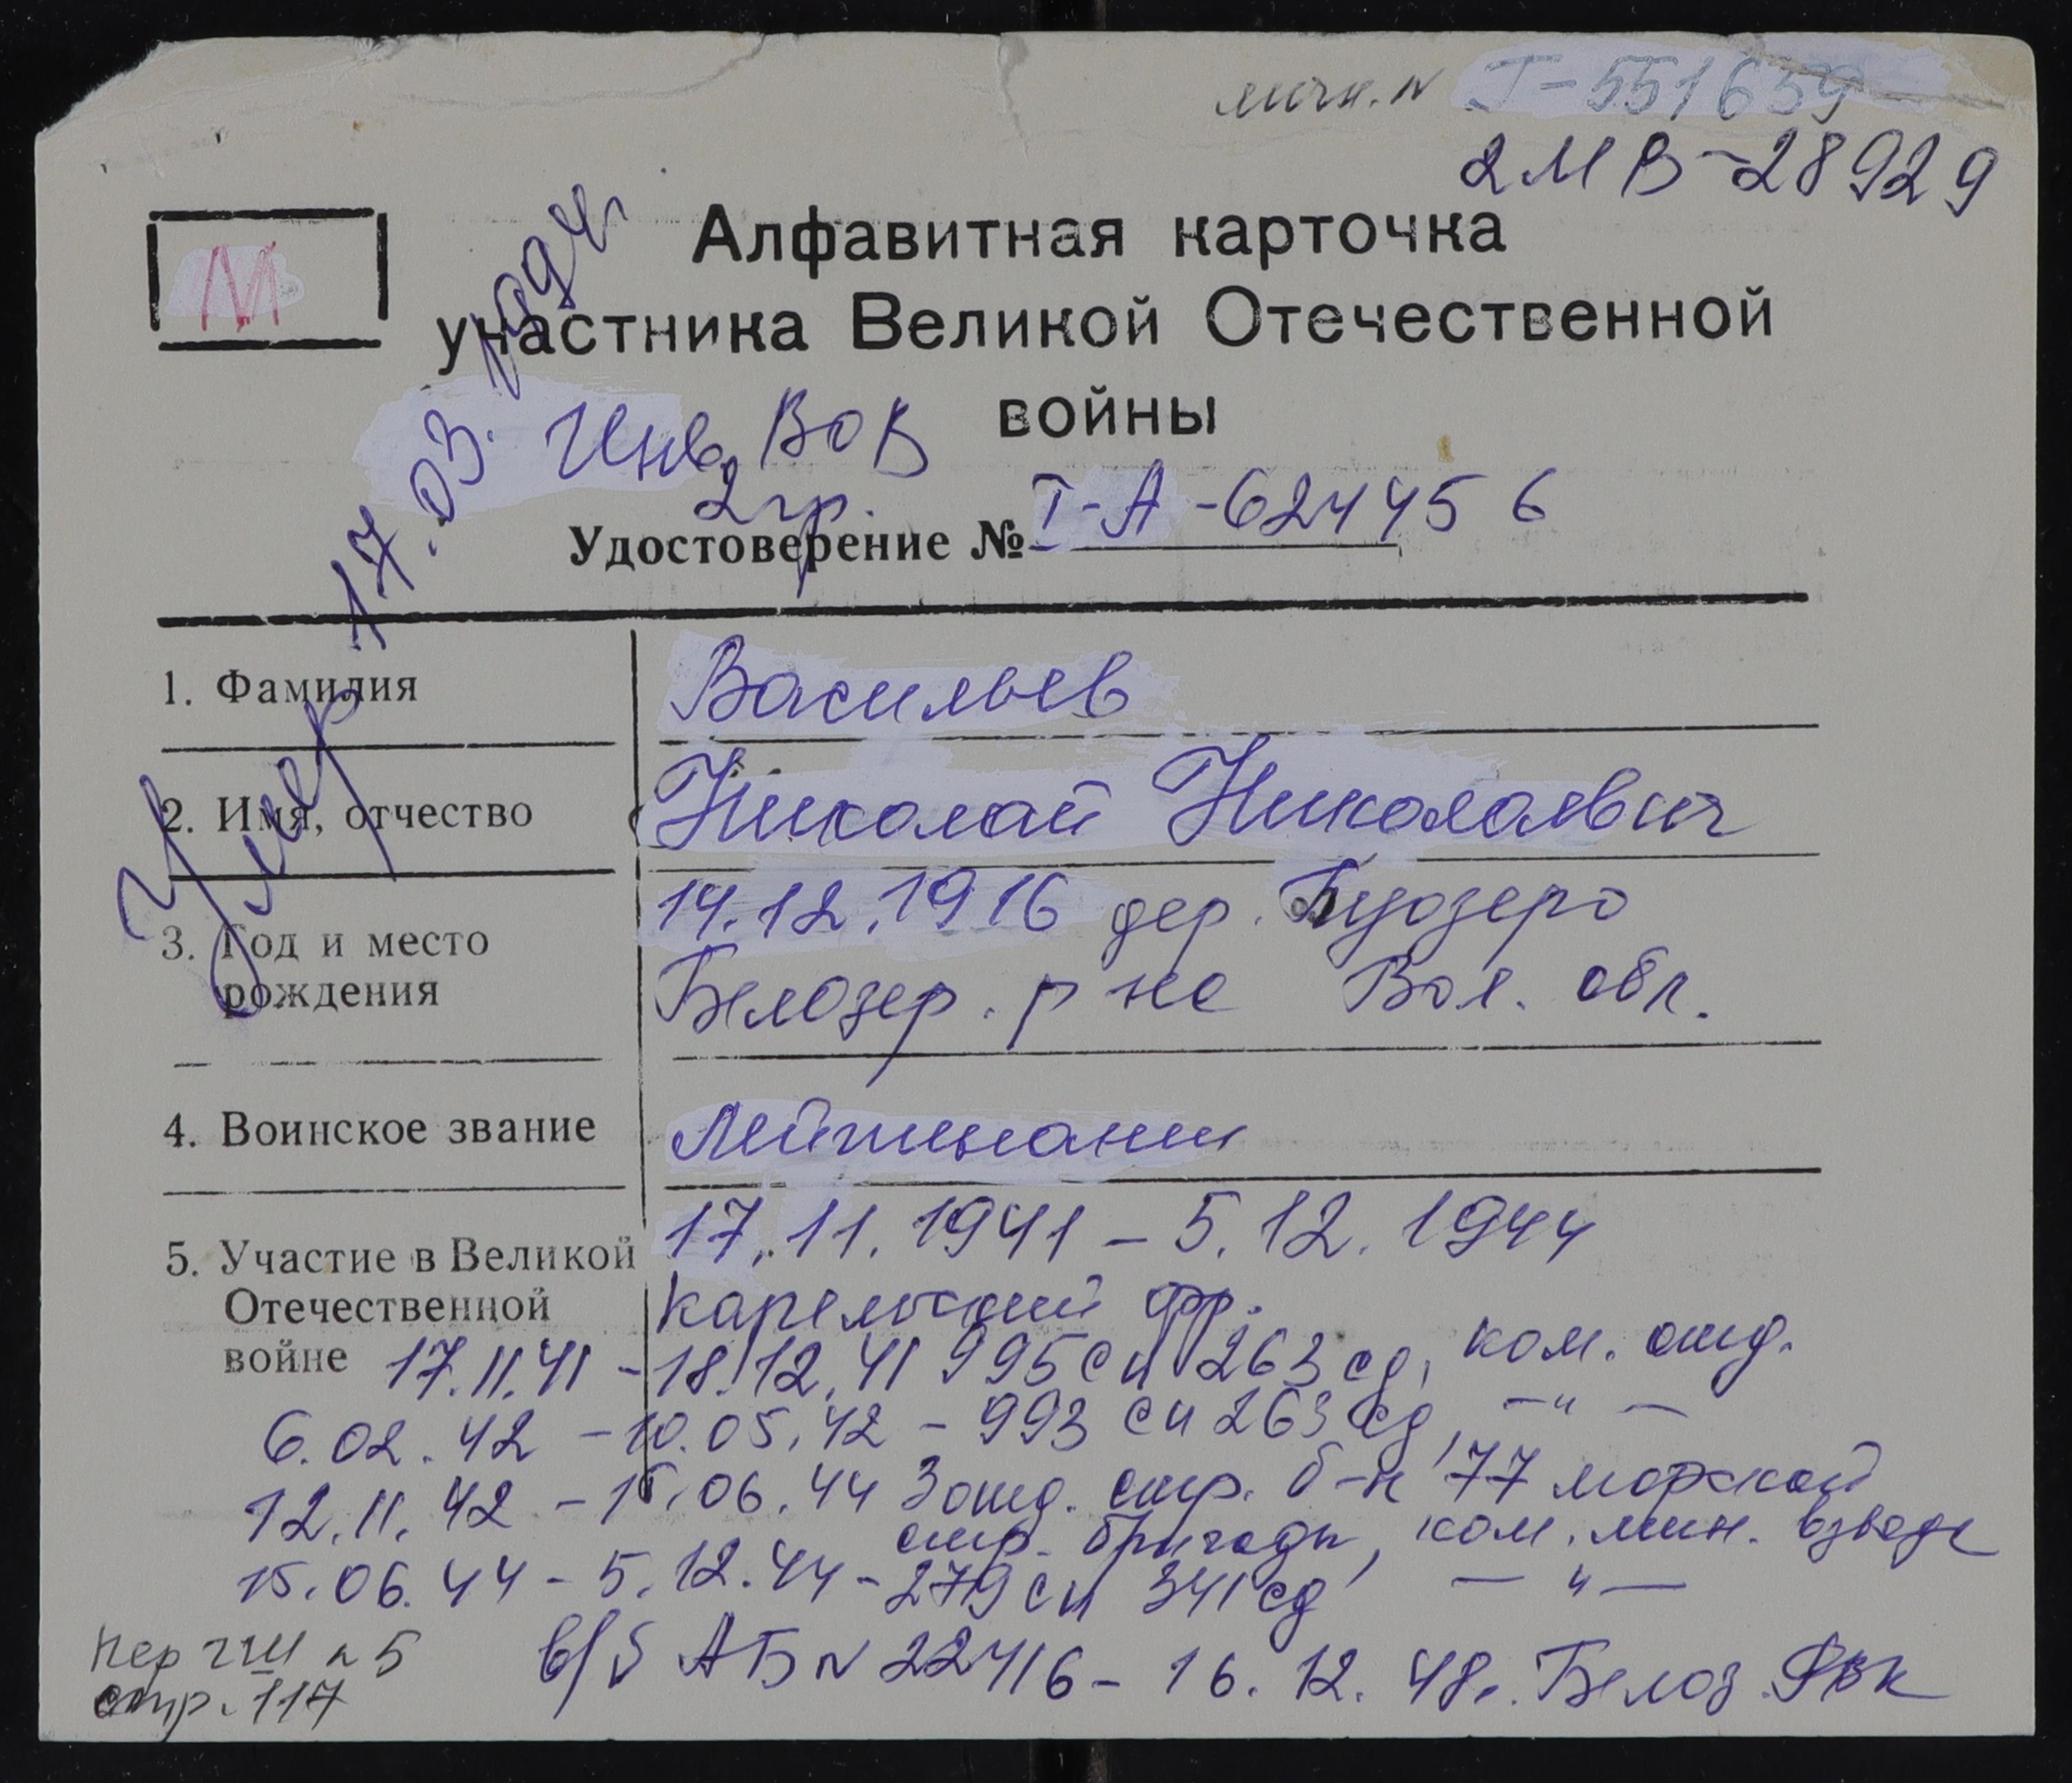 личн. N Г-551659
2МВ-28929
М
Алфавитная карточка
участника Великой Отечественной
войны
Инв. ВОВ
2 гр.
Удостоверение № I-А-624456
Умер 17.03.1994г.
1. Фамилия Васильев
2. Имя, отчество Николай Николаевич
3. Год и место 14.12.1916 дер. Буозеро
рождения Белозер. р-на Вол. обл.
4. Воинское звание Лейтенант
5. Участие в Великой 17.11.1941 – 5.12.1944
Отечественной Карельский фр.
войне 17.11.41 – 18.12.41 995 сп 263 сд, ком. отд.
6.02.42 – 10.05.42 – 993 сп 263 сд, –"–
12.11.42 – 15.06.44 3 отд. стр. б-н 77 морской
стр. бригады, ком. мин. взвода
15.06.44 – 5.12.44 – 279 сп 341 сд, –"–
в/б АБ N 22416 – 16.12.48г. Белоз. РВК
Пер ГШ п 5
стр. 117